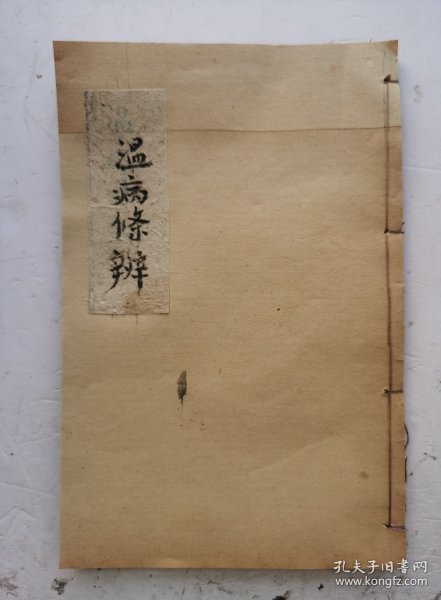 温病條辨
孔夫子旧书网
www.kongfz.com